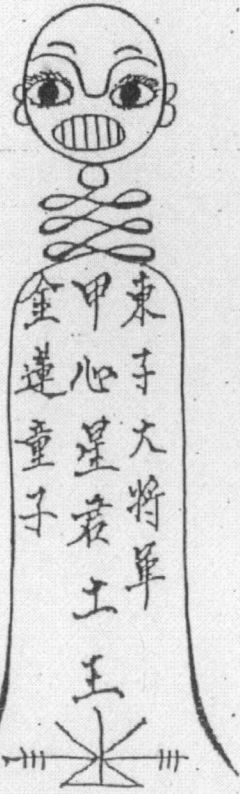 東子大將軍
甲心星君土王
金蓮童子